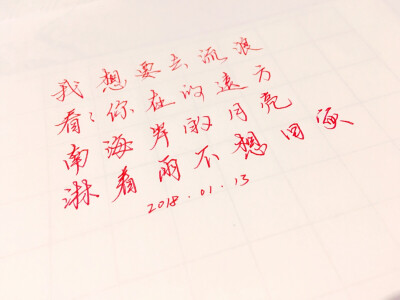 我想要去流浪
看看你在的远方
南海岸的月亮
淋着雨不想回家
2018.01.13